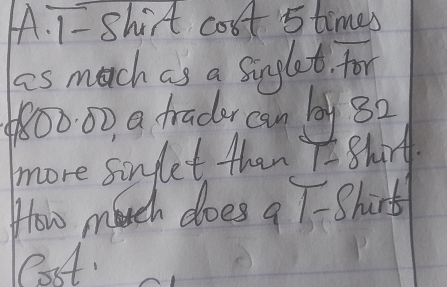 A. T-Shirt cost 5 times
as much as a singlet. For
₵800.00, a trader can by 32
more singlet than T-Shirt.
How much does a T-Shirt
Cost.